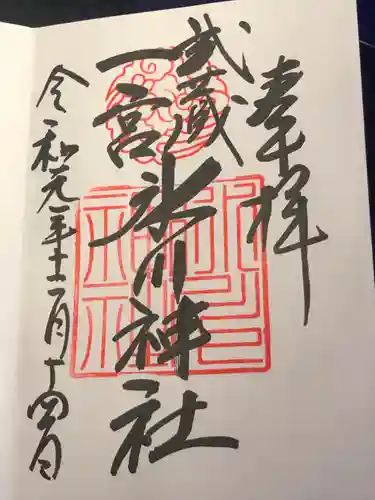 奉拝
武蔵
一宮
氷川神社
令和元年十一月十四日
氷川
神社